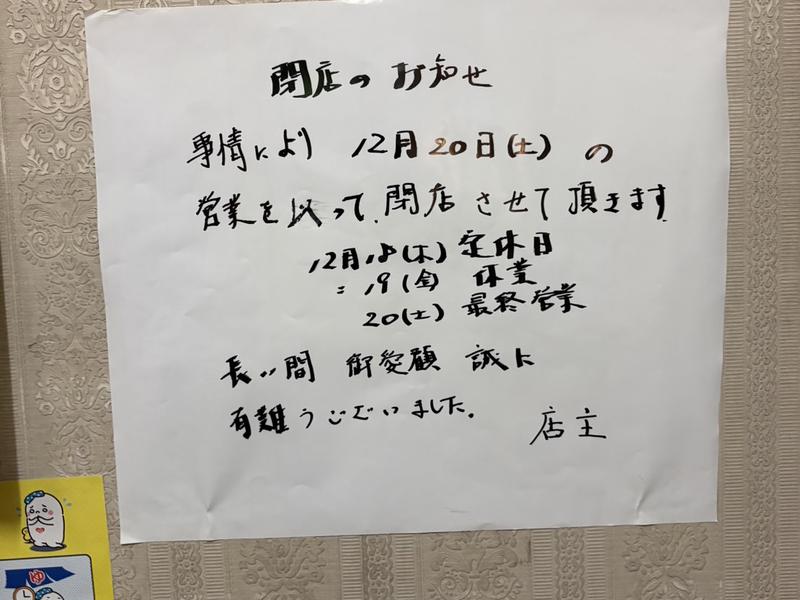 閉店のお知せ
事情により 12月20日(土)の
営業を以って、閉店させて頂きます
12月18(木) 定休日
〃 19(金) 休業
20(土) 最終営業
長い間 御愛顧 誠に
有難うございました。
店主